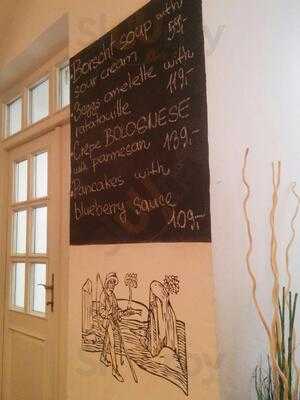 • Borscht soup with
sour cream 59,-
• 3eggs omelette with
ratatouille 119,-
• Crepe BOLOGNESE
with parmesan 139,-
• Pancakes with
blueberry sauce
109,-